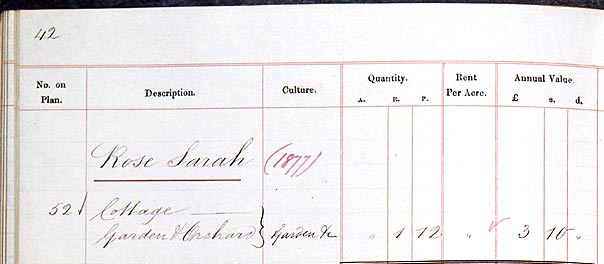 42
No. on Plan. Description. Culture. Quantity. A. R. P. Rent Per Acre. Annual Value. £ s. d.
Rose Sarah (1877)
52 Cottage
Garden & Orchard } Garden &c " 1 12 " 3 10 "